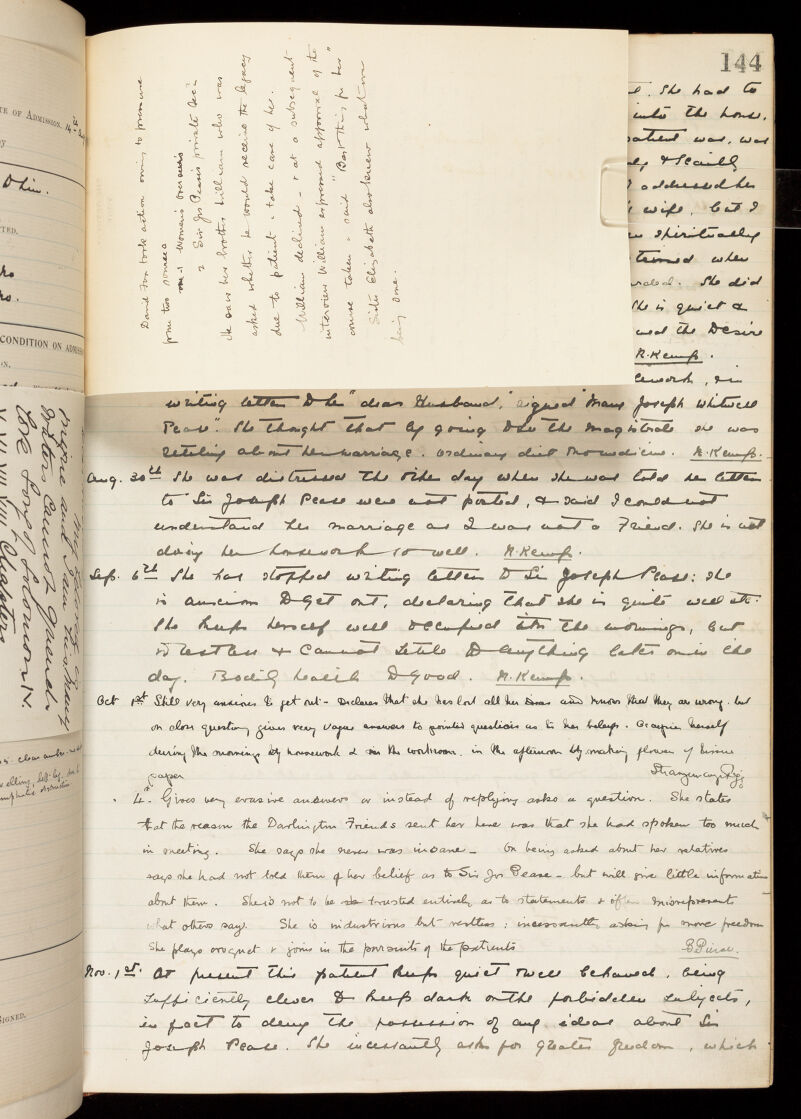 144
She had to
into the house.
patient was, was
& Scantily
addressed her
wife, but I
Spiritually
when
She did
She is quiet &
and the Desire
N. Kemp.
David Fox took action owing to pressure
from two sources
1 Women's overseers
2 Sir Jos Pease's private Sec.
He saw her brother William who was
asked whether he would receive the legacy
due to patient & take care of her.
William declined – & at a subsequent
interview William expressed approval of the
course taken & said "Best thing for her"
Sister Elizabeth also knew what was
being done.
writing letters to her "dear Husband," signed Mary Joseph Whitwell
Pease. She thought that by going before the magistrate she was
settling about her marriage. Ordinary diet No medicine. N. Kemp.
Aug. 30th She was distressed the other day when she was told her letters
to Sir Joseph Pease were not posted, & said I could not
understand her marriage as I was not a Friend. She is not
doing her housework so well. N. Kemp.
Sep. 6th She has stopped writing letters to Sir Joseph Pease: she
is anxious to get out, declaring that she is quite well etc.
She keeps herself well occupied in the mornings, but
is restless & cannot settle to anything later on in the
day. Bodily health is good. N. Kemp.
Oct 1st Still very anxious to get out – Declares that she has lost all her ideas and knows that they are wrong, but
on close questioning gives very vague answers to pointed questions as to her beliefs. Occupies herself
during the mornings by housework & in the workroom, in the afternoon by making flowers of tissue
paper
4th Gives very evasive answers or instead of replying asks a question. She states
that the reason the Darlington Friends sent her here was that she had spoken too much
in meeting. She says she never was insane – On being asked about her relatives
says she had not told them of her belief as to Sir Jos Pease – but will give little information
about them. She is not to be trusted entirely as to statements & often misrepresents
what others say. She is industrious but restless; incessantly asking for more freedom
She plays croquet & joins in the pursuits of the patients B Pierce.
Nov. 1st. At present this patient keeps quiet & well behaved, being
sufficiently clever to keep dark on the forbidden subjects,
in fact to deny the possession of any ideas about Sir
Joseph Pease. She incessantly asks for greater freedom, which
TE OF ADMISSION, 14th
CONDITION ON ADMISSION
Sisters Council Friends
Love Song of Solomon IV.
V. VI. VII. VIII. Chapters
SIGNED.